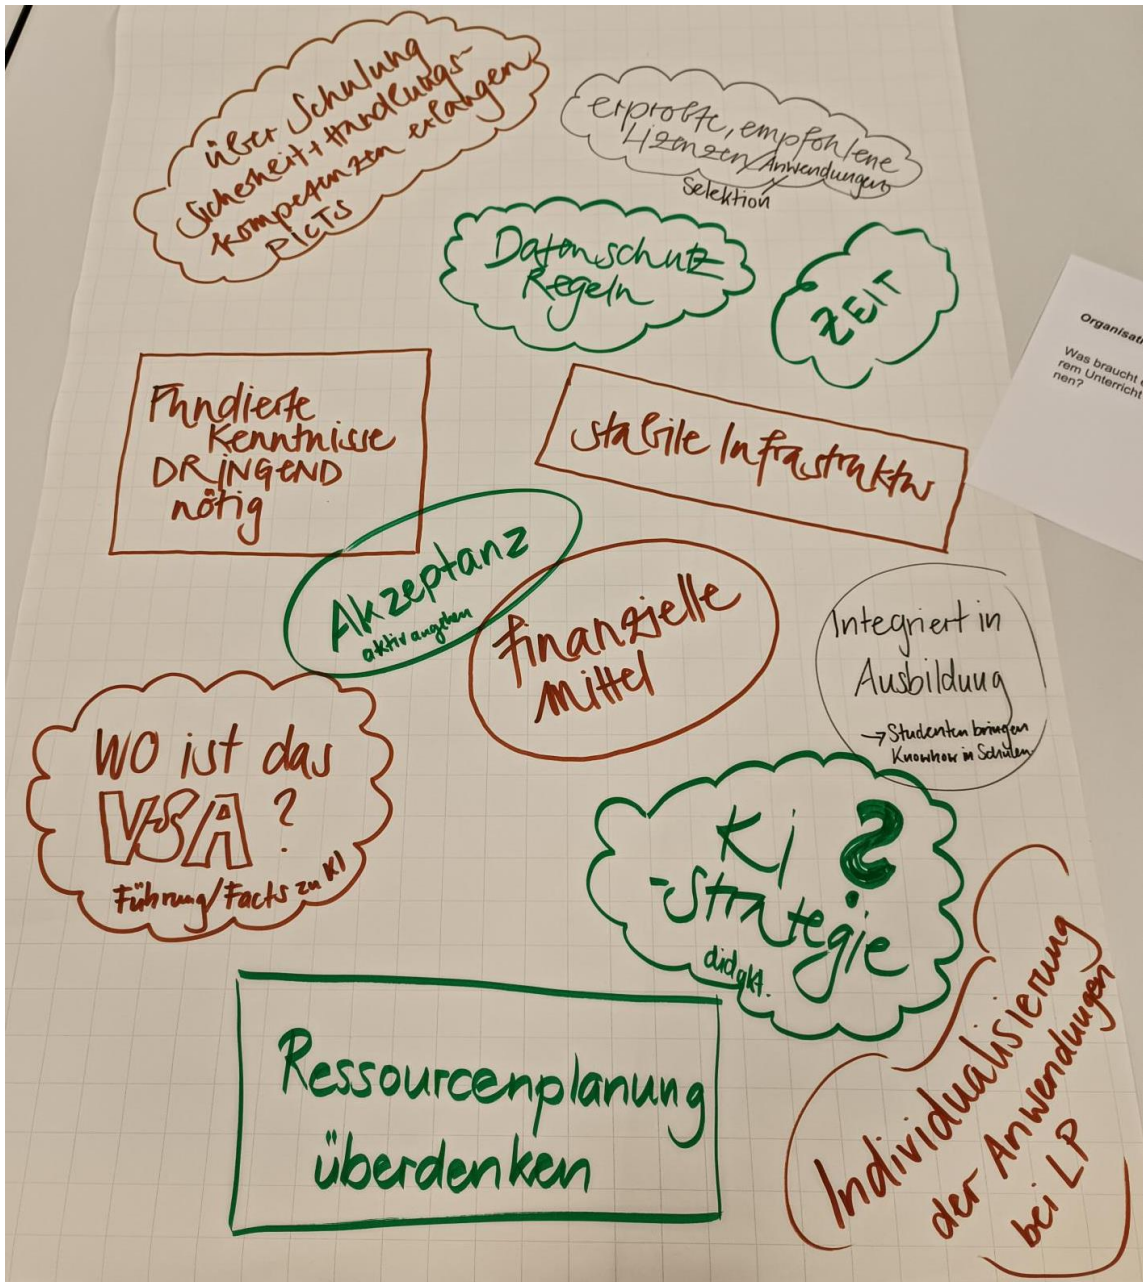 über Schulung
Sicherheit + Handlungs-
kompetenzen erlangen
PICTS
erprobte, empfohlene
Lizenzen/Anwendungen
Selektion
Datenschutz
Regeln
ZEIT
Organisati
Was braucht
rem Unterricht
nen?
Fundierte
Kenntnisse
DRINGEND
nötig
stabile Infrastruktur
Akzeptanz
aktiv angehen
finanzielle
mittel
Integriert in
Ausbildung
→ Studenten bringen
Knowhow in Schulen
WO ist das
VSA?
Führung/Facts zu KI
KI ?
-Strategie
didakt.
Ressourcenplanung
überdenken
Individualisierung
der Anwendungen
bei LP